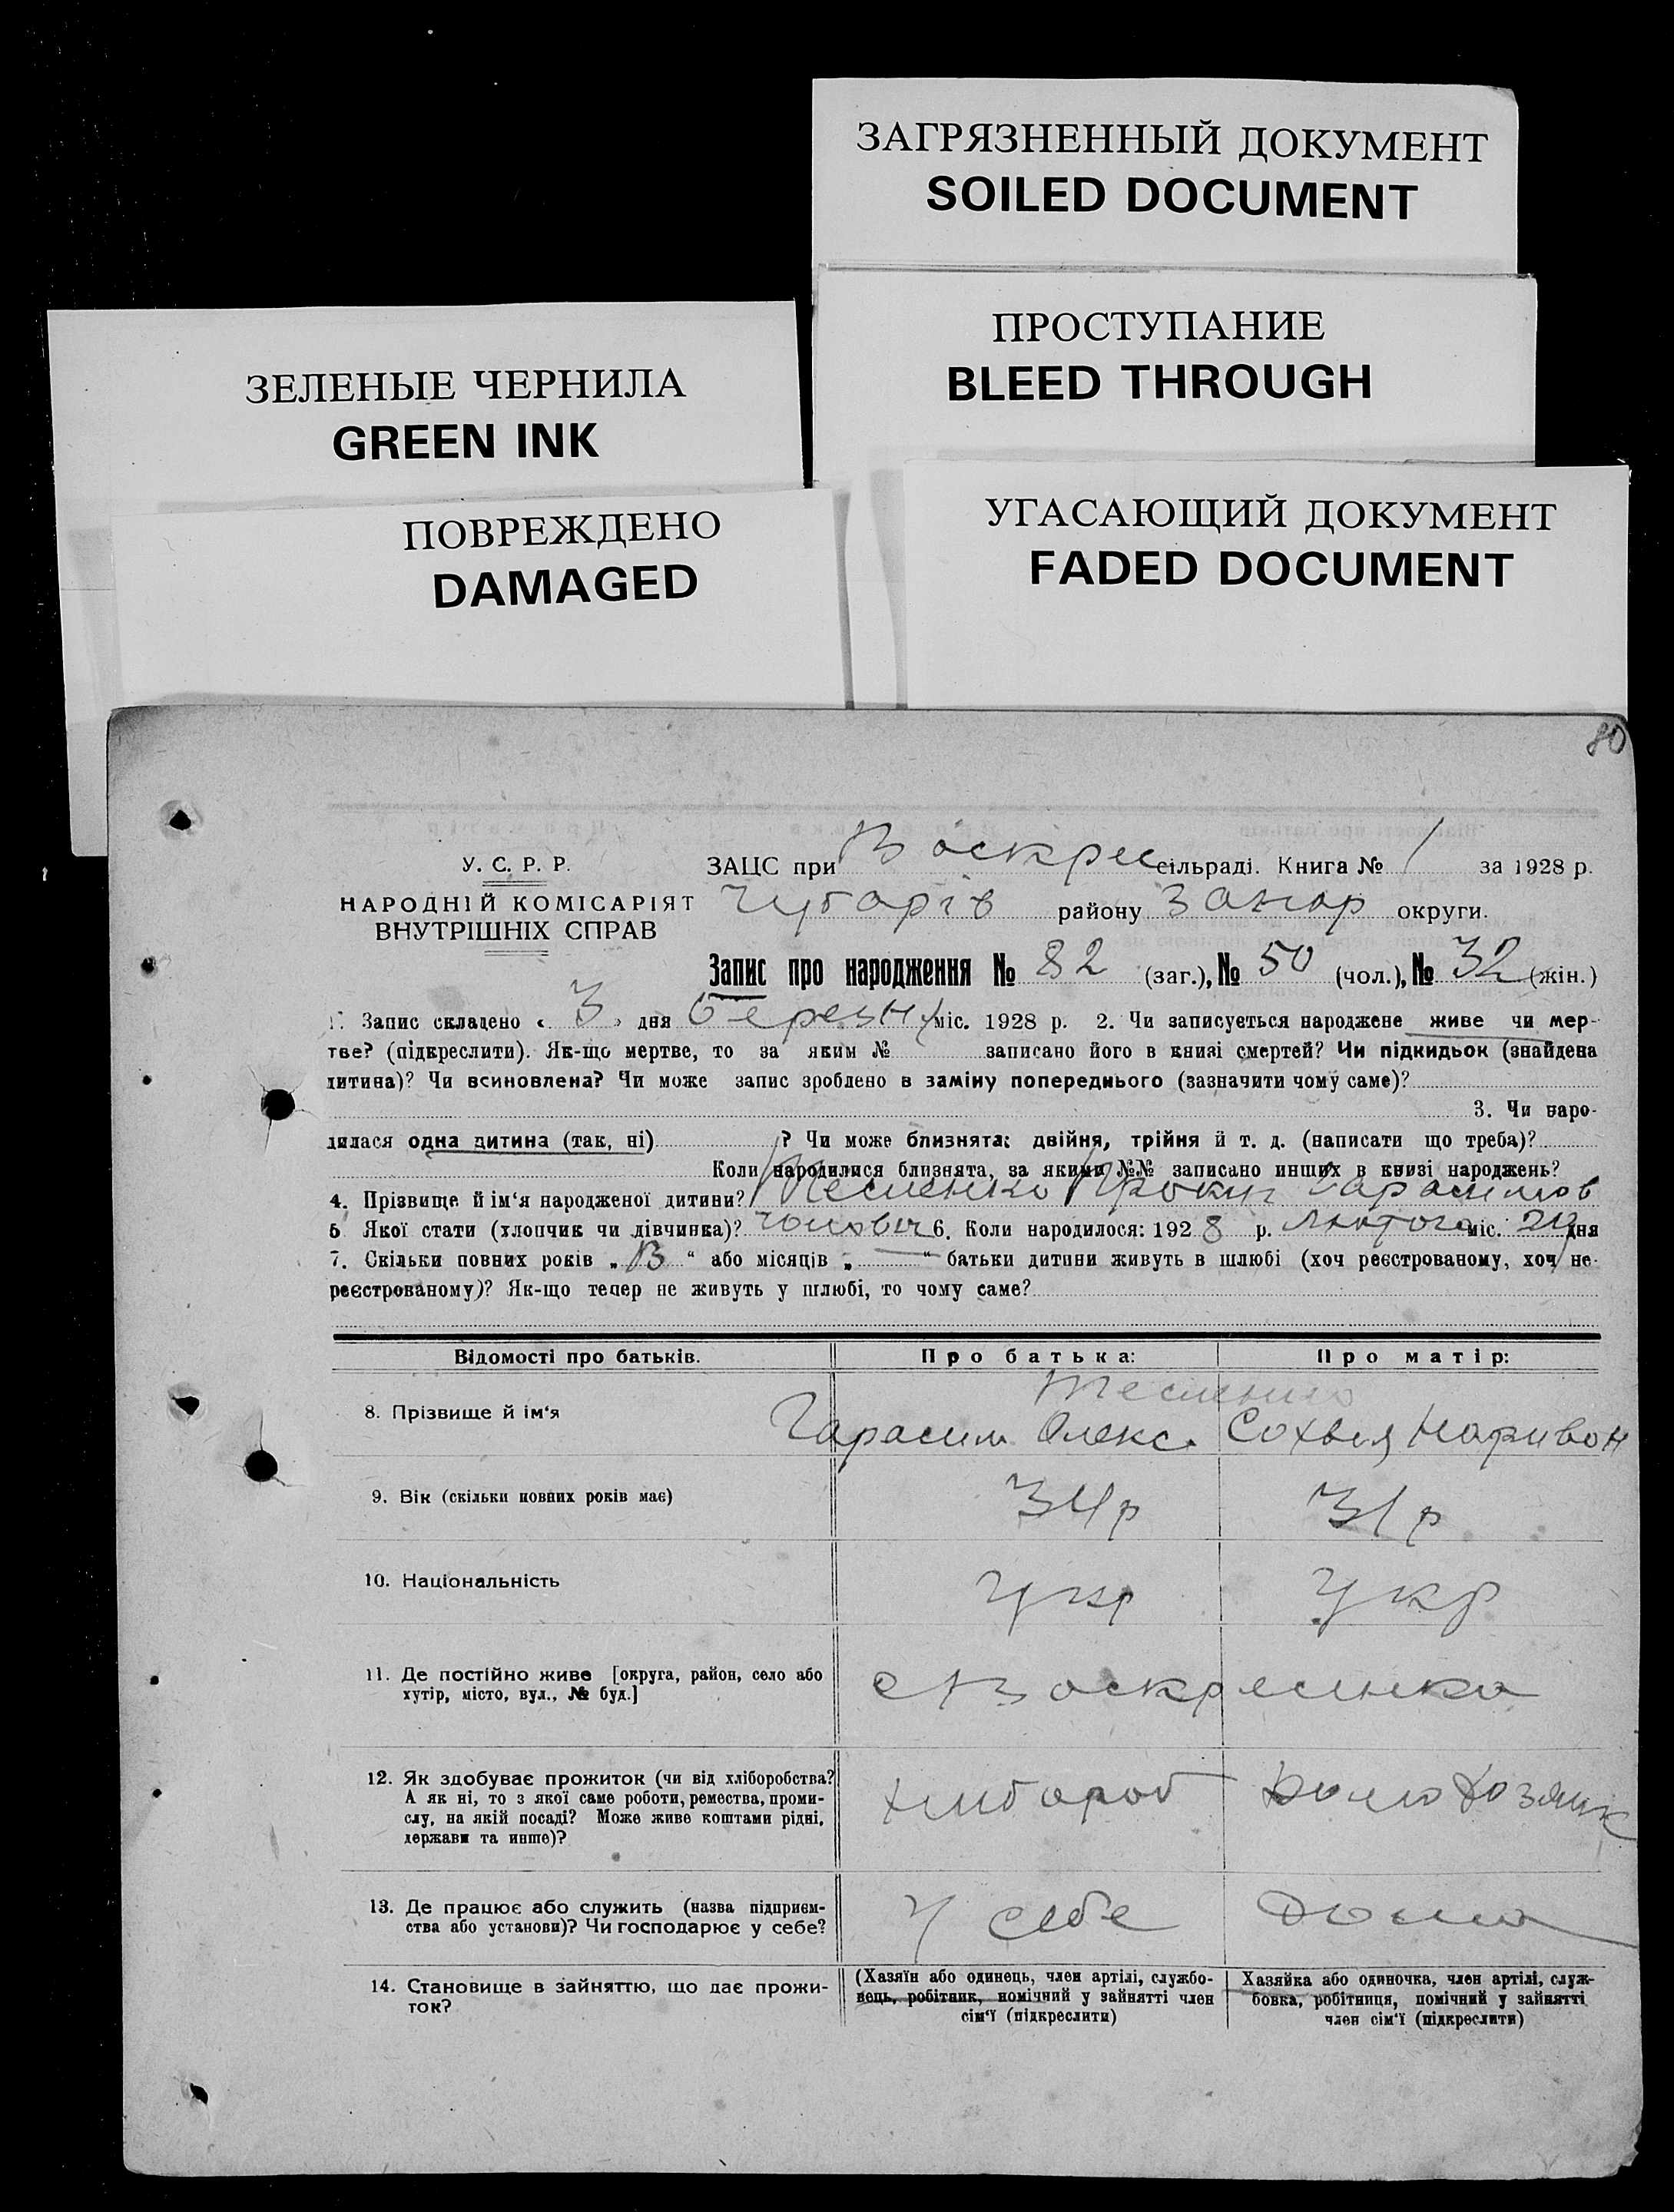 ЗАГРЯЗНЕННЫЙ ДОКУМЕНТ
SOILED DOCUMENT
ПРОСТУПАНИЕ
BLEED THROUGH
ЗЕЛЕНЫЕ ЧЕРНИЛА
GREEN INK
ПОВРЕЖДЕНО
DAMAGED
УГАСАЮЩИЙ ДОКУМЕНТ
FADED DOCUMENT
80
У. С. Р. Р.
НАРОДНІЙ КОМІСАРІЯТ
ВНУТРІШНІХ СПРАВ
ЗАЦС при Воскрес сільраді. Книга № 1 за 1928 р.
Чубарів району Запор округи.
Запис про народження № 82 (заг.), № 50 (чол.), № 32 (жін.)
1. Запис складено « 3 » дня березн міс. 1928 р. 2. Чи записується народжене живе чи мер-
тве? (підкреслити). Як-що мертве, то за яким № записано його в книзі смертей? Чи підкидьок (знайдена
дитина)? Чи всиновлена? Чи може запис зроблено в заміну попереднього (зазначити чому саме)?
3. Чи наро-
дилася одна дитина (так, ні) ? Чи може близнята: двійня, трійня й т. д. (написати що треба)?
Коли народилися близнята, за якими №№ записано инших в книзі народжень?
4. Прізвище й ім‘я народженої дитини? Тесленко Прокип Гарасимов
5 Якої стати (хлопчик чи дівчинка)? 6. Коли народилося: 1928 р. Лютого міс. дня
7. Скільки повних років „ 13 “ або місяців „ — “ батьки дитини живуть в шлюбі (хоч реєстрованому, хоч не-
реєстрованому)? Як-що тепер не живуть у шлюбі, то чому саме?
Відомості про батьків.
Про батька:
Про матір:
8. Прізвище й ім‘я
Тесленко
Гарасим Олекс.
Сохвия
9. Вік (скільки повних років має)
34р
31р
10. Національність
Укр
Укр
11. Де постійно живе [округа, район, село або
хутір, місто, вул., № буд.]
с Воскресенка
12. Як здобуває прожиток (чи від хліборобства?
А як ні, то з якої саме роботи, ремества, проми-
слу, на якій посаді? Може живе коштами рідні,
держави та инше)?
хлібороб
13. Де працює або служить (назва підприєм-
ства або установи)? Чи господарює у себе?
У себе
Дома
14. Становище в зайняттю, що дає прожи-
ток?
(Хазяїн або одинець, член артілі, службо-
вець, робітник, помічний у зайнятті член
сім‘ї (підкреслити)
Хазяйка або одиночка, член артілі, служ-
бовка, робітниця, помічний у зайнятті
член сім‘ї (підкреслити)